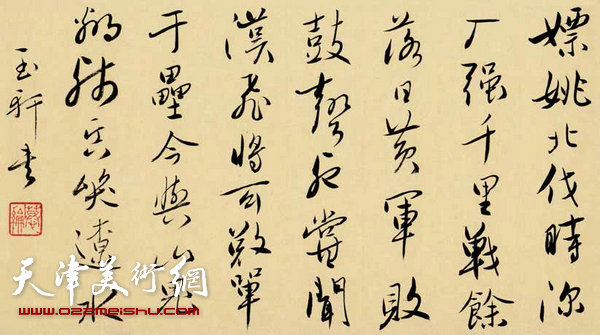 嫖姚北伐時深
入强千里戰餘
落日黄軍敗
鼓聲死嘗聞
漢飛將可敚單
于壘今與山鬼
鄰殘兵哭遼水
玉軒书
天津美術網
www.022meishu.com